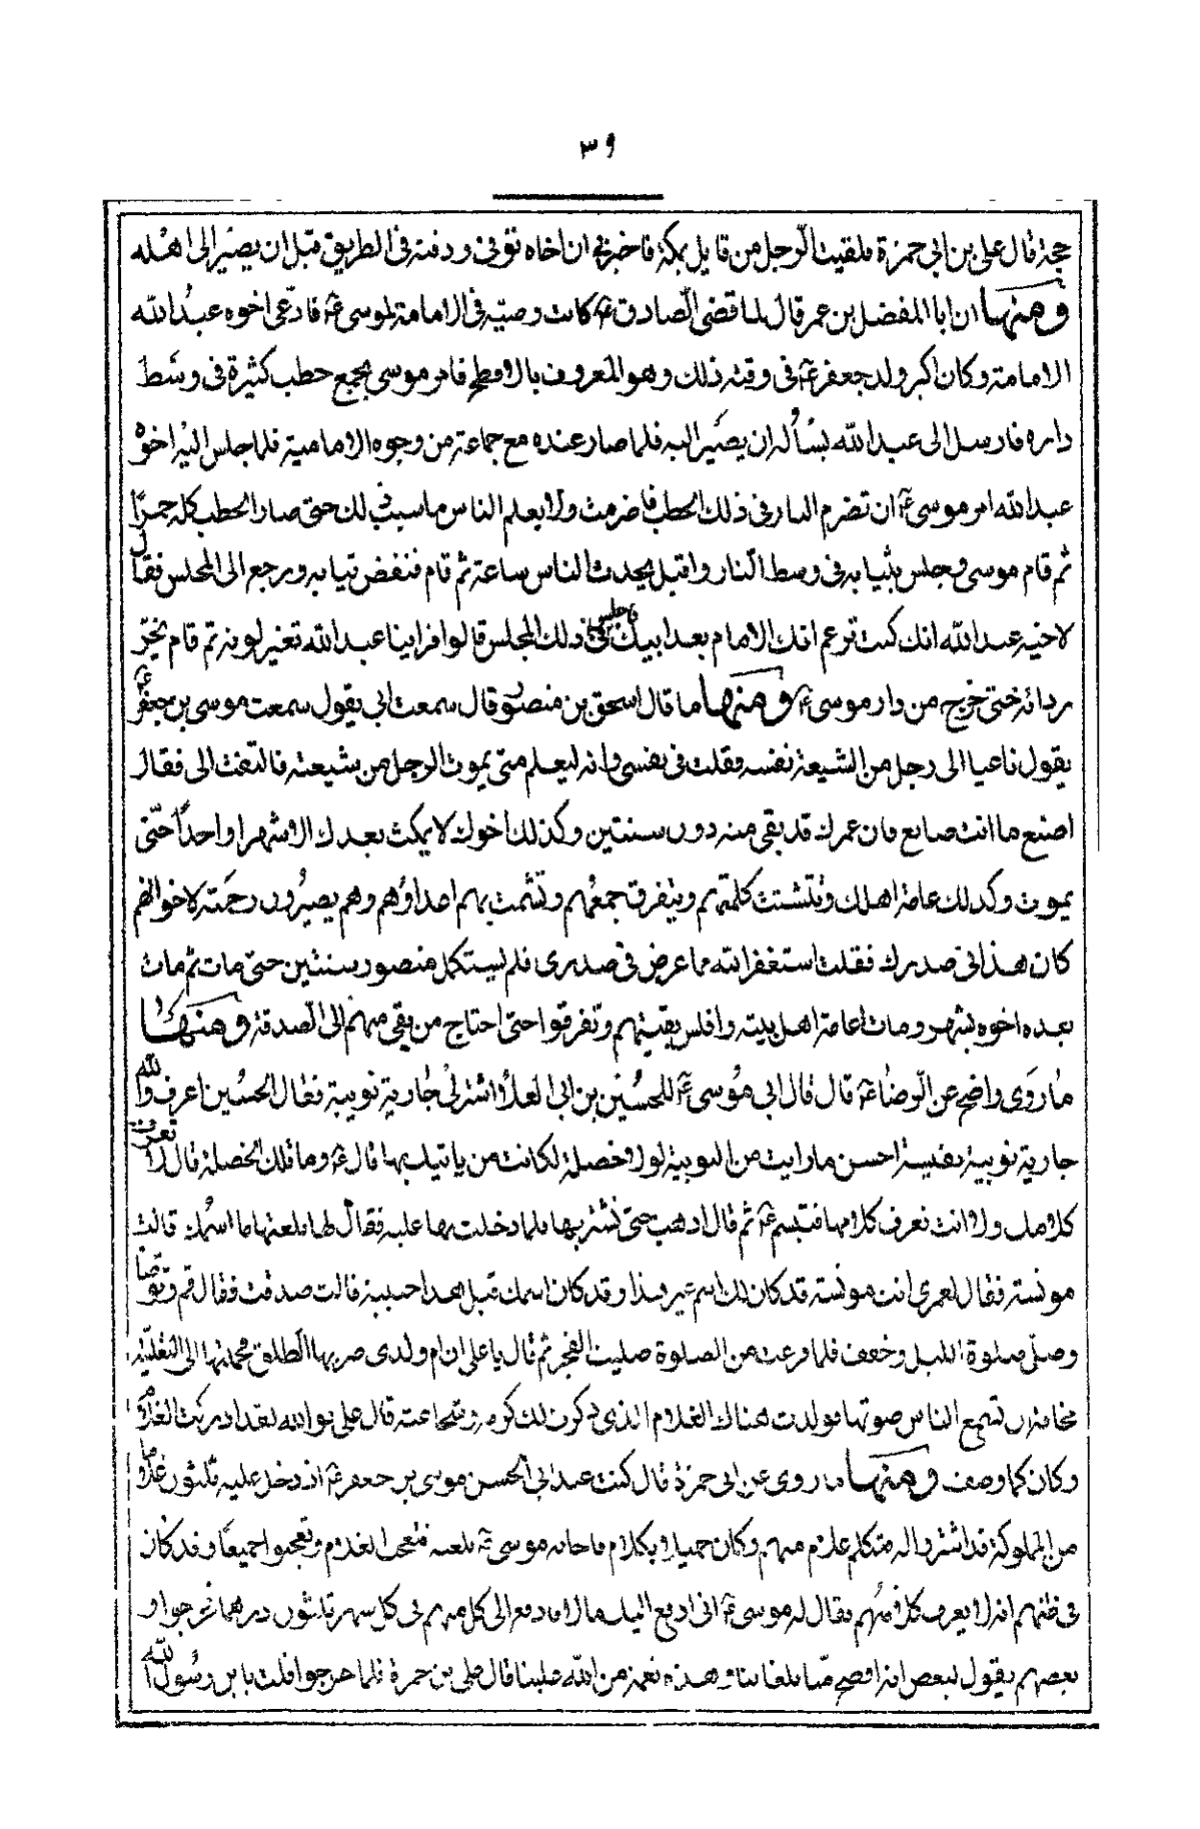 ٣٩
حجة قال علي بن ابي حمزة فلقيت الرّجل من قابل بمكة فاخبرني ان اخاه توفي ودفنه في الطريق قبل ان يصير الى اهله
ومنها ان ابا المفضل بن عمر قال لما قضى الصّادق ع كانت وصيّته في الامامة لموسى ع فادّعى اخوه عبد الله
الامامة وكان اكبر ولد جعفر ع في وقته ذلك وهو المعروف بالافطح فامر موسى بجمع حطب كثيرة في وسط
داره فارسل الى عبد الله يسأله ان يصير اليه فلما صار عنده مع جماعة من وجوه الامامية فلما جلس اليه اخوه
عبد الله امر موسى ع ان تضرم النار في ذلك الحطب فاضرمت ولا يعلم الناس ما سبب ذلك حتى صار الحطب كله جمرًا
ثم قام موسى وجلس بثيابه في وسط النّار واقبل يحدث الناس ساعة ثم قام فنفض ثيابه ورجع الى المجلس فقال
لاخيه عبد الله انك كنت تزعم انك الامام بعد ابيك فاجلس في ذلك المجلس قالوا فراينا عبد الله تغير لونه ثم قام يجرّ
ردائه حتى خرج من دار موسى ع ومنها ما قال اسحق بن منصور قال سمعت ابي يقول سمعت موسى بن جعفر ع
يقول ناعيا الى رجل من الشيعة نفسه فقلت في نفسي وانه ليعلم متى يموت الرجل من شيعته فالتفت الى فقال
اصنع ما انت صانع فان عمرك قد بقى منه دون سنتين وكذلك اخوك لا يمكث بعدك الا شهرا واحدًا حتّى
يموت وكذلك عامة اهلك وتتشتت كلمتهم ويتفرق جمعهم وتشمت بهم اعداؤهم وهم يصيرون رحمة لاخوانهم
كان هذا في صدرك فقلت استغفر الله مما عرض في صدري فلم يستكمل منصور سنتين حتى مات ثم مات
بعده اخوه بشهر ومات عامة اهل بيته وافلس بقيتهم وتفرقوا حتى احتاج من بقى منهم الى الصّدقة ومنها
ما روى واضح عن الرّضا ع قال قال ابي موسى ع للحسين بن ابي العلا اشتر لي جارية نوبية فقال الحسين اعرف والله
جارية نوبية نفيسة احسن ما رايت من النوبية لولا خصلة لكانت من يأتيك بها قال ع وما تلك الخصلة قال لا تعرف
كلامك ولا انت تعرف كلامها فتبسم ع ثم قال اذهب حتى تشتر بها فلما دخلت بها عليه فقال لها بلغتها ما اسمك قالت
مونسة فقال لعمري انت مونسة قد كان لك اسم غير هذا وقد كان اسمك قبل هذا حبيبة قالت صدقت فقال قم وتوضّا
وصلّ صلوة الليل وخفف فلما فرغت من الصلوة صليت الفجر ثم قال يا علي ان ام ولدي ضربها الطلق فحملتها الى
مخافة ان تسمع الناس صوتها فولدت هناك الغلام الذي ذكرت لك كرمه وشجاعته قال علي فوالله لقد ادركت الغلام
وكان كما وصف ومنها ما روى عن ابي حمزة قال كنت عند ابي الحسن موسى بن جعفر ع اذ دخل عليه ثلثون غلاما
من المملوكة قد اشتروا له فتكلم غلام منهم وكان جميلا بكلام فاجابه موسى ع بلغته فتعجب الغلام وتعجبوا جميعًا وقد كان
في ظنهم انه لا يعرف كلامهم فقال له موسى ع اني ادفع اليك مالا فادفع الى كل منهم في كل شهر ثلثون درهما فخرجوا و
بعضهم يقول لبعض انه افصح منا بلغاتنا وهذه نعمة من الله علينا قال علي بن حمزة فلما خرجوا قلت يا بن رسول الله